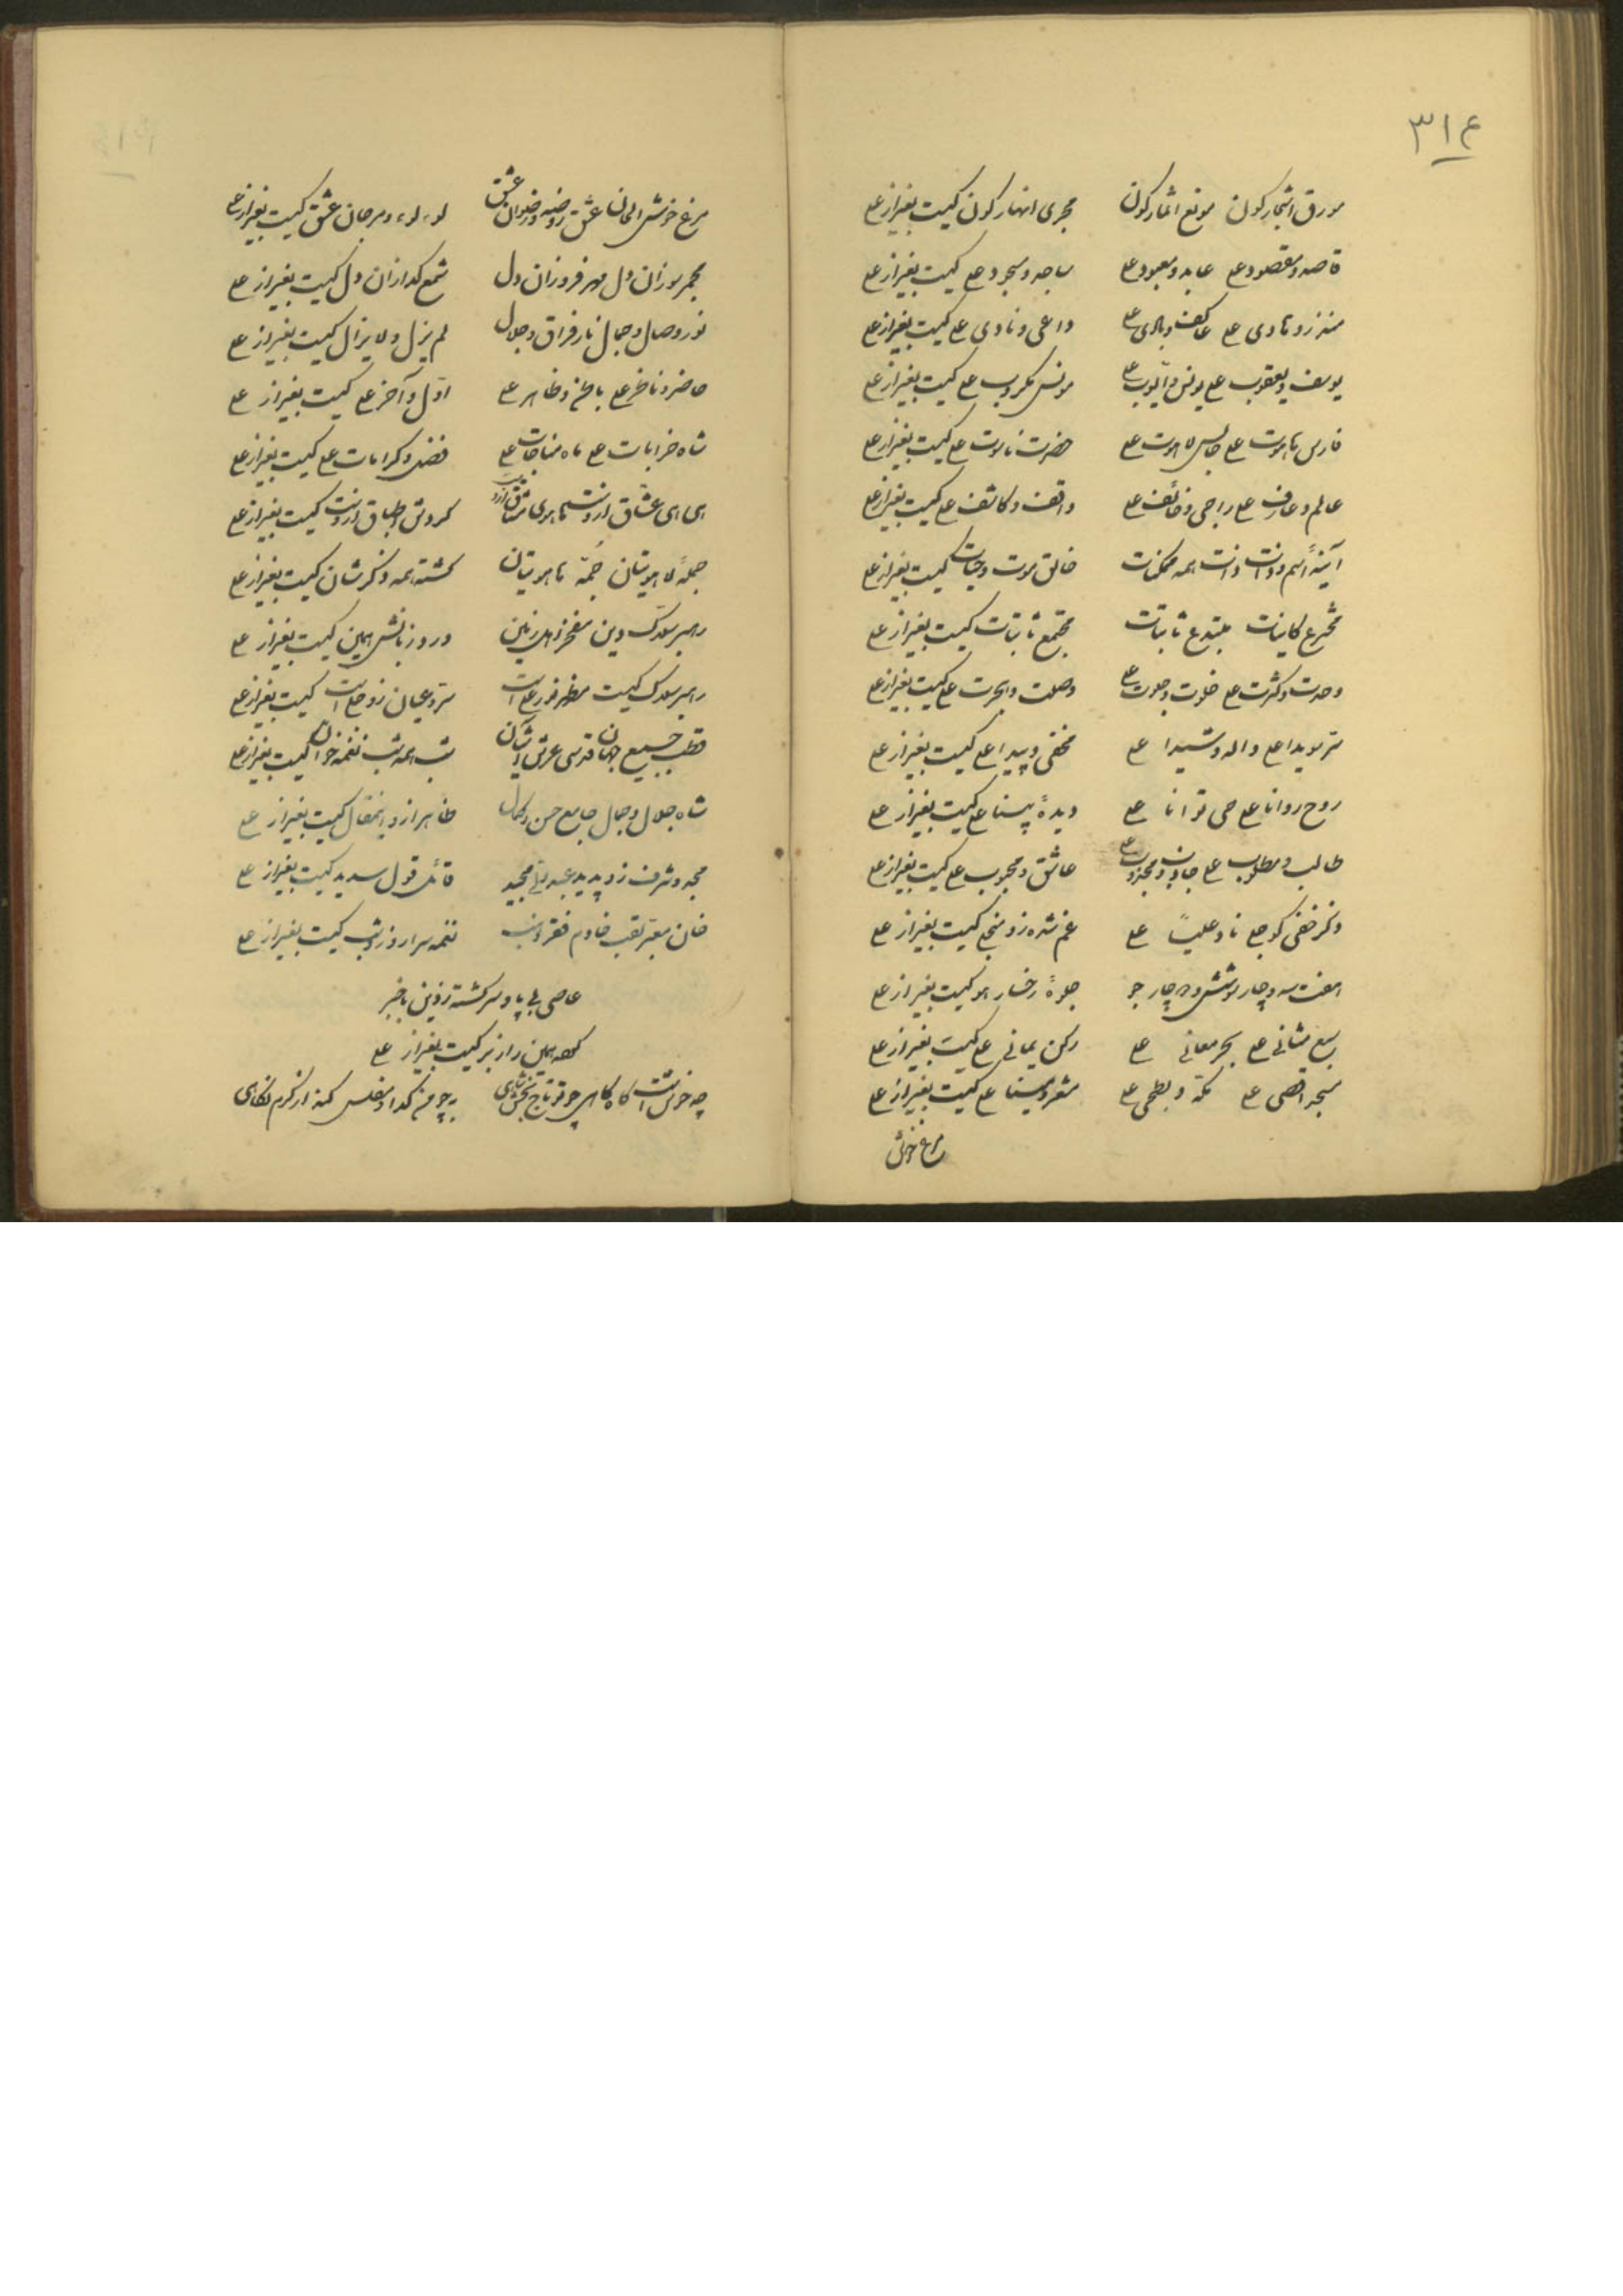 ۳۱۴
مورق اشجار کون مونع اثمار کون مجری انهار کون کیست بغیر از علی
قاصد و مقصود علی عابد و معبود علی ساجد و مسجود علی کیست بغیر از علی
منذر و هادی علی عاکف و بادی علی داعی و نادی علی کیست بغیر از علی
یوسف و یعقوب علی یونس و ایوب علی مونس مکروب علی کیست بغیر از علی
فارس هاهوت علی جالس لاهوت علی حضرت ناسوت علی کیست بغیر از علی
عالم و عارف علی راجی و خائف علی واقف و کاشف علی کیست بغیر از علی
آینهٔ اسم و ذات همه ممکنات خالق موت و حیات کیست بغیر از علی
مخترع کاینات مبتدع ثابتات مجتمع شتات کیست بغیر از علی
وحدت و کثرت علی خلوت و جلوت علی وصلت و هجرت علی کیست بغیر از علی
سر هویدا علی واله و شیدا علی مخفی و پیدا علی کیست بغیر از علی
روح روانا علی حی توانا علی دیدهٔ بینا علی کیست بغیر از علی
طالب و مطلوب علی جاذب و مجذوب علی عاشق و محبوب علی کیست بغیر از علی
ذکر خفی کو جلی ناد علیاً علی غم شده زو منجلی کیست بغیر از علی
هفت و سه و چار و شش و چار جو جلوهٔ رخسار هو کیست بغیر از علی
سبع مثانی علی بحر معانی علی رکن یمانی علی کیست بغیر از علی
مسجد اقصی علی مکه و بطحی علی مشعر و سینا علی کیست بغیر از علی
مرغ خوش
مرغ خوش الحان عشق روضه رضوان عشق لوء لوء و مرجان عشق کیست بغیر از علی
مجمر سوزان دل مهر فروزان دل شمع گدازان دل کیست بغیر از علی
نور وصال و جمال نار فراق و جلال لم یزل و لا یزال کیست بغیر از علی
حاضر و ناظر علی باطن و ظاهر علی اول و آخر علی کیست بغیر از علی
شاه خرابات علی ماه مناجات علی فضل و کرامات علی کیست بغیر از علی
هی هی عشاق ازوست هاهوی مشتاق ازوست گردش اطباق ازوست کیست بغیر از علی
جملهٔ لاهوتیان جمّهٔ ناسوتیان گشته همه ذکرشان کیست بغیر از علی
رهبر سلاک دین مفخر اهل زمین ورد زبانش همین کیست بغیر از علی
رهبر سلاک کیست مظهر نور علی است سر و عیان زو جلی است کیست بغیر از علی
قطب جمیع جهان قدسی عرش آشیان شب همه شب نغمه خوان کیست بغیر از علی
شاه جلال و جمال جامع حسن و کمال ظاهر ازو این مقال کیست بغیر از علی
مجد و شرف زو پدید عبد مجید قائل قول سدید کیست بغیر از علی
خان لقب خادم فقر نغمه سرا روز و شب کیست بغیر از علی
عاصی بی پا و سر گشته ازین باخبر
همین راز بر کیست بغیر از علی
چه خوش است گاه گاهی چو تو تاج بخش شاهی به چو من گدا و مفلس کند از کرم نگاهی